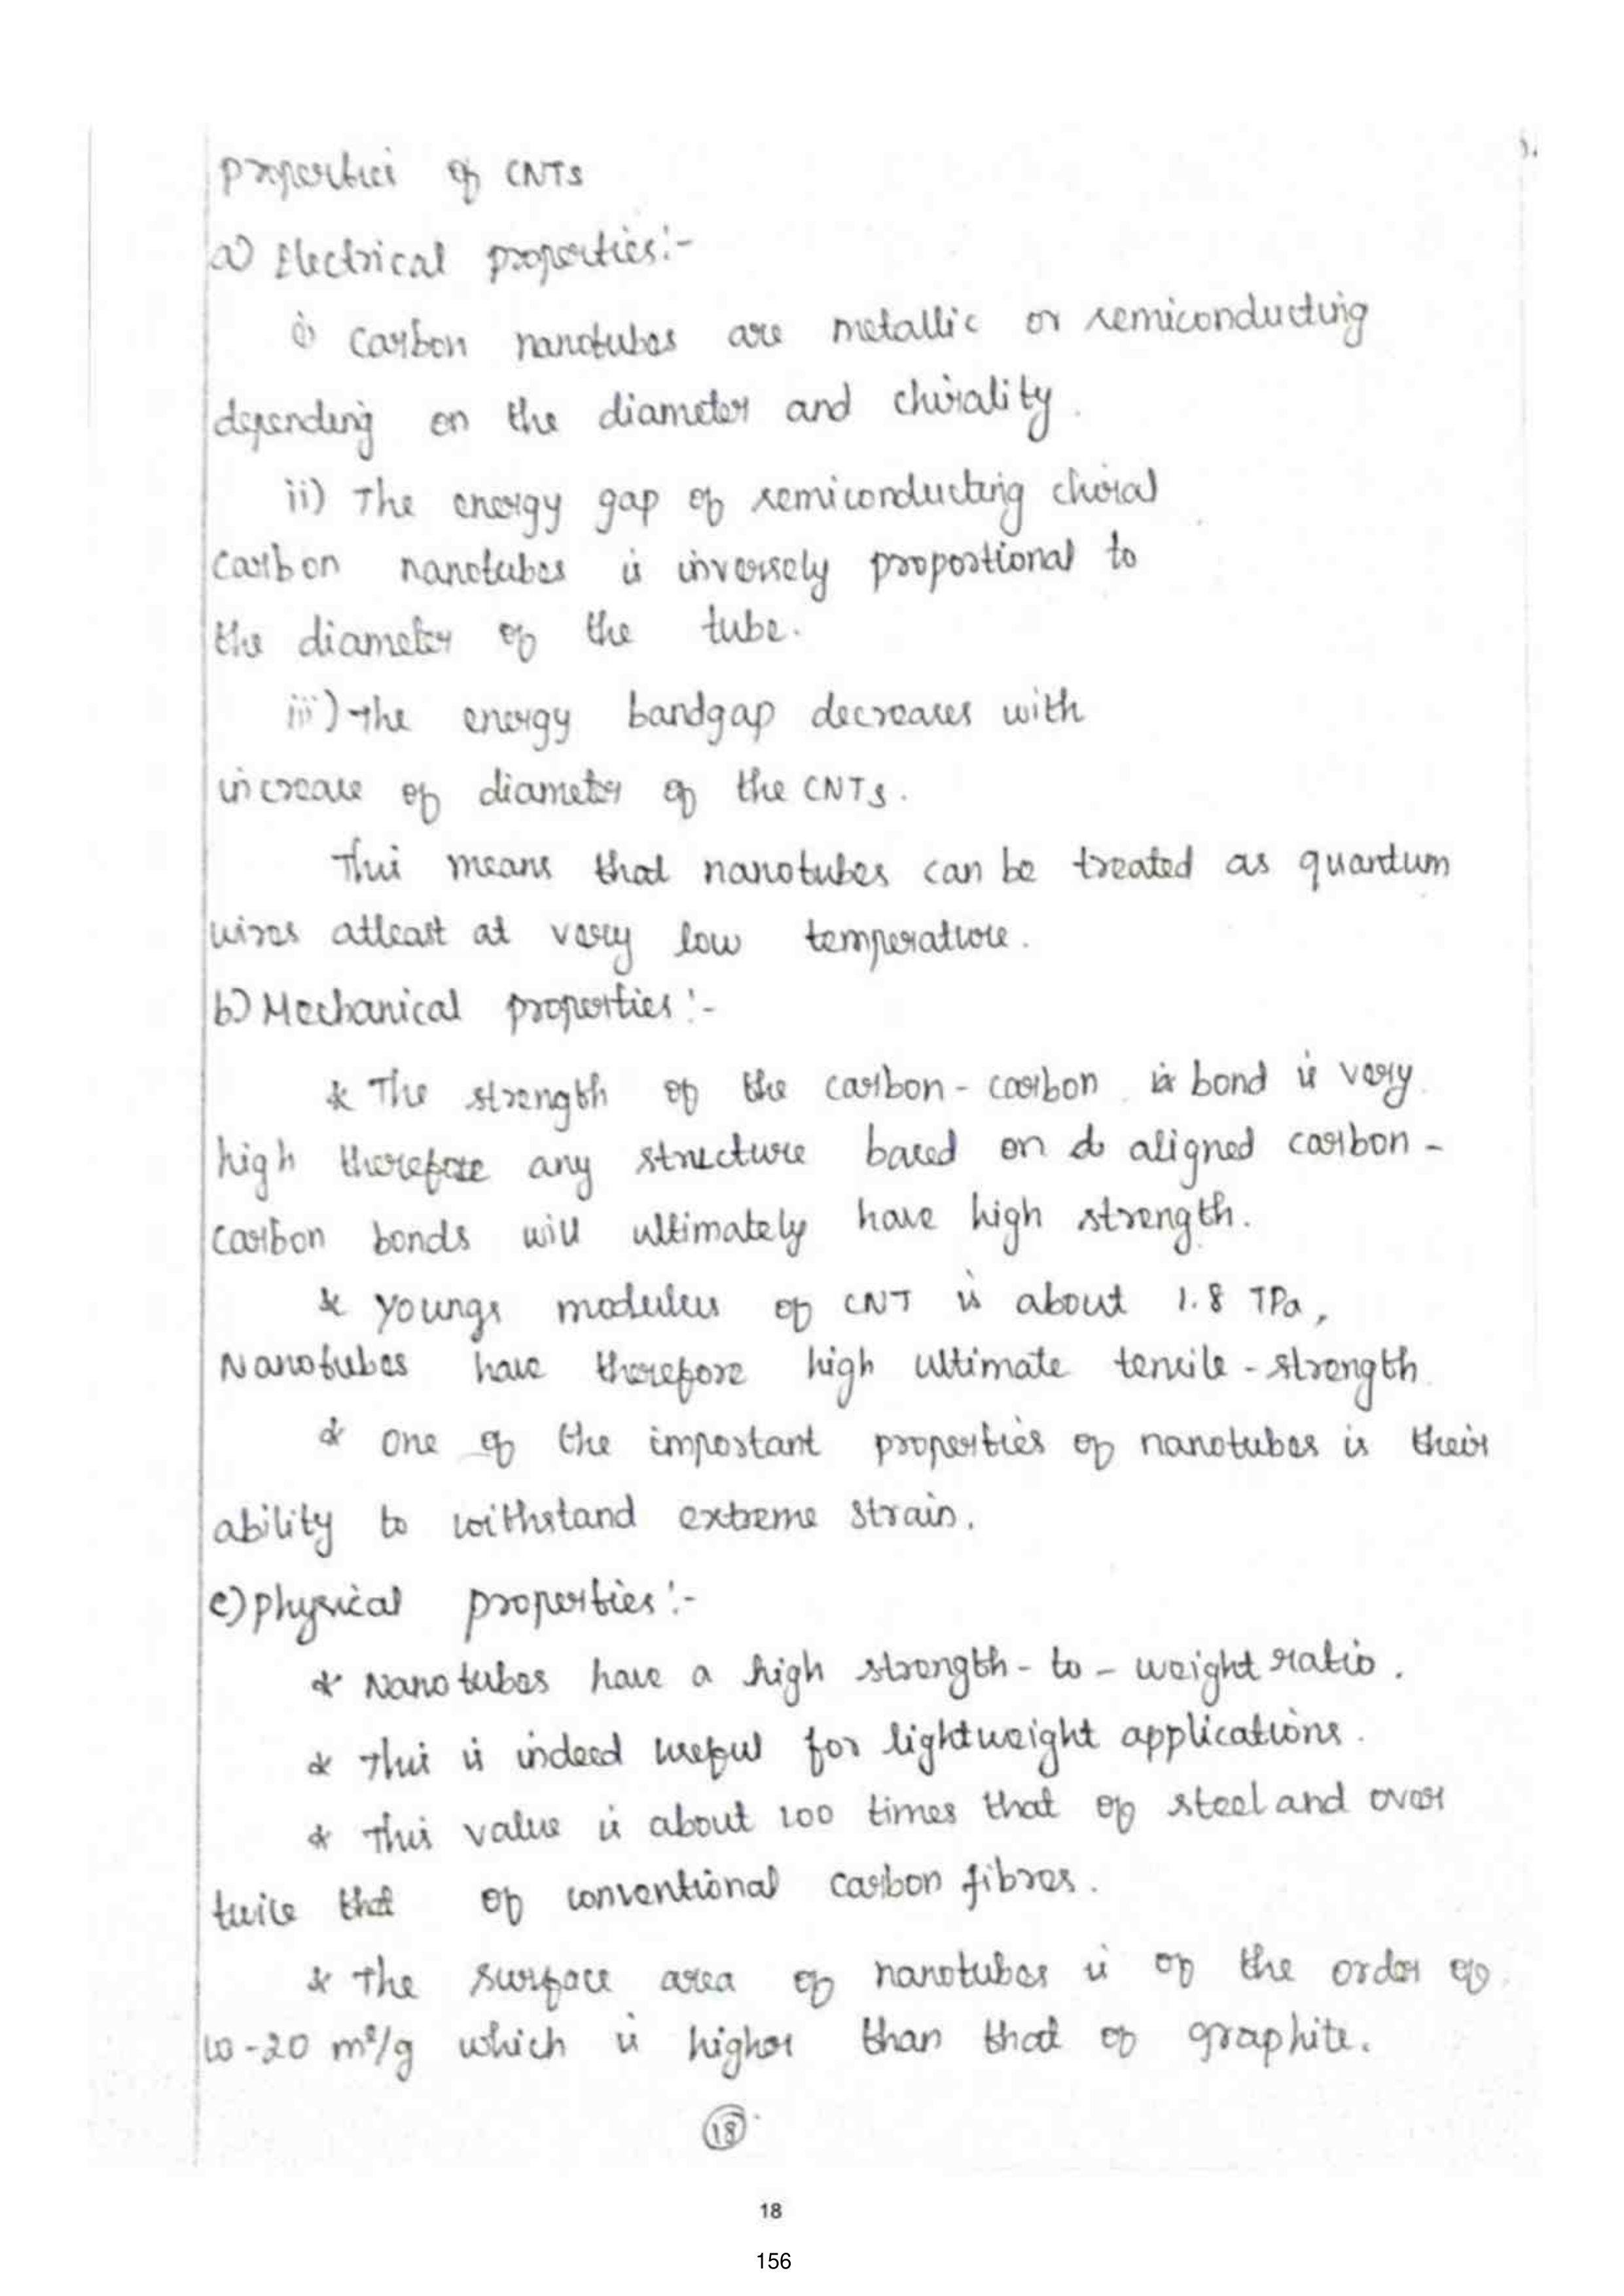 Properties of CNTs
a) Electrical properties:-
i) Carbon nanotubes are metallic or semiconducting
depending on the diameter and chirality.
ii) The energy gap of semiconducting chiral
carbon nanotubes is inversely proportional to
the diameter of the tube.
iii) The energy bandgap decreases with
increase of diameter of the CNTs.
This means that nanotubes can be treated as quantum
wires atleast at very low temperature.
b) Mechanical properties:-
* The strength of the carbon - carbon bond is very
high therefore any structure based on aligned carbon -
carbon bonds will ultimately have high strength.
* Youngs modulus of CNT is about 1.8 TPa,
Nanotubes have therefore high ultimate tensile - strength
* One of the important properties of nanotubes is their
ability to withstand extreme strain.
c) physical properties:-
* Nanotubes have a high strength - to - weight ratio.
* This is indeed useful for lightweight applications.
* This value is about 100 times that of steel and over
twice that of conventional carbon fibres.
* The surface area of nanotubes is of the order of
10-20 m²/g which is higher than that of graphite.
18
18
156